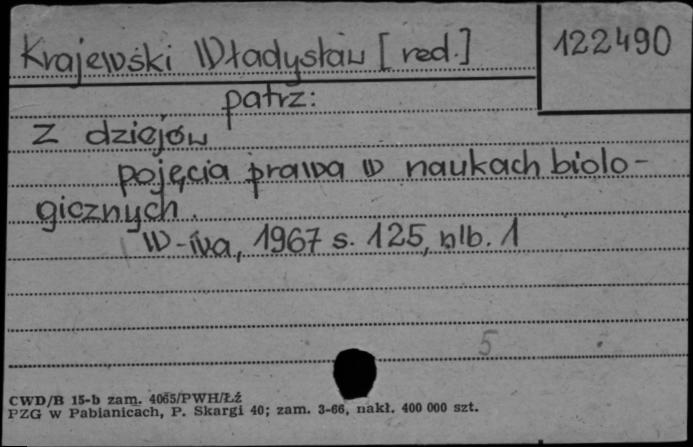 Krajewski Władysław [red.]
122490
patrz:
Z dziejów
pojęcia prawa w naukach biolo-
gicznych.
W-wa, 1967 s. 125, nlb. 1
5
CWD/B 15-b zam. 4065/PWH/Łź
PZG w Pabianicach, P. Skargi 40; zam. 3-66, nakł. 400 000 szt.